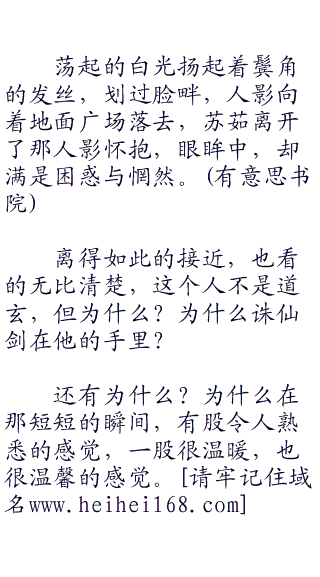 荡起的白光扬起着鬓角
的发丝，划过脸畔，人影向
着地面广场落去，苏茹离开
了那人影怀抱，眼眸中，却
满是困惑与惘然。(有意思书
院)
离得如此的接近，也看
的无比清楚，这个人不是道
玄，但为什么？为什么诛仙
剑在他的手里？
还有为什么？为什么在
那短短的瞬间，有股令人熟
悉的感觉，一股很温暖，也
很温馨的感觉。[请牢记住域
名www.heihei168.com]